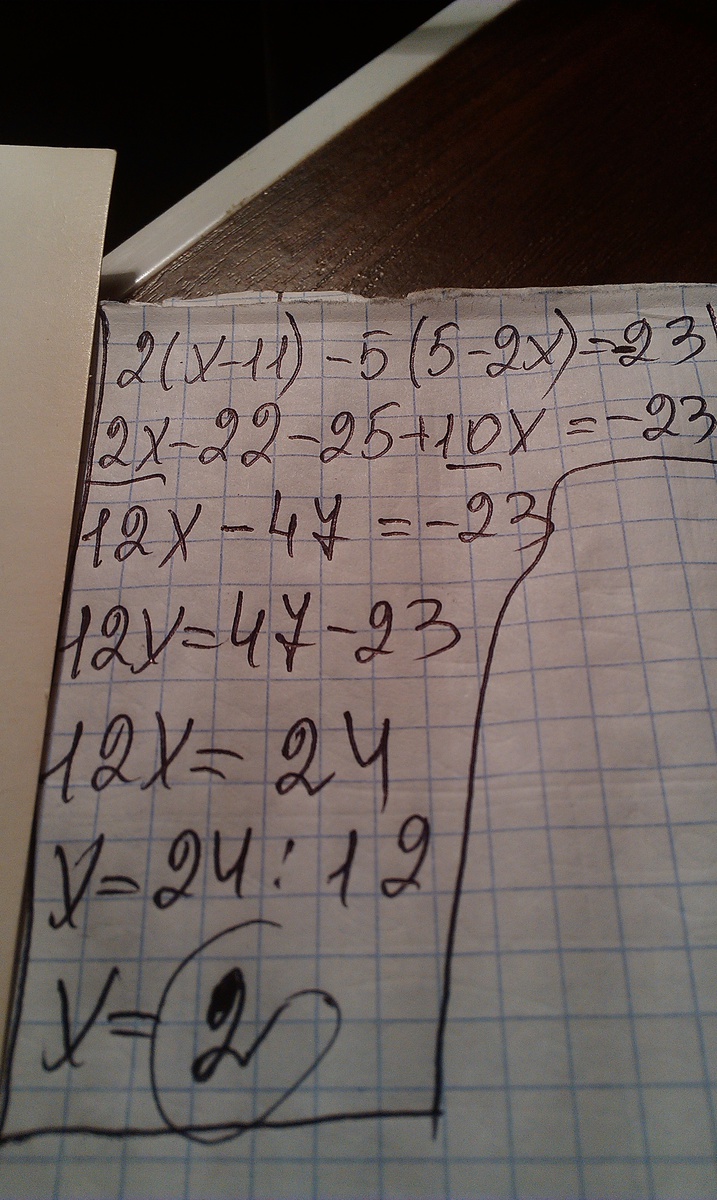 2(x-11)-5(5-2x)=-23
2x-22-25+10x=-23
12x-47=-23
12x=47-23
12x=24
x=24:12
x=2